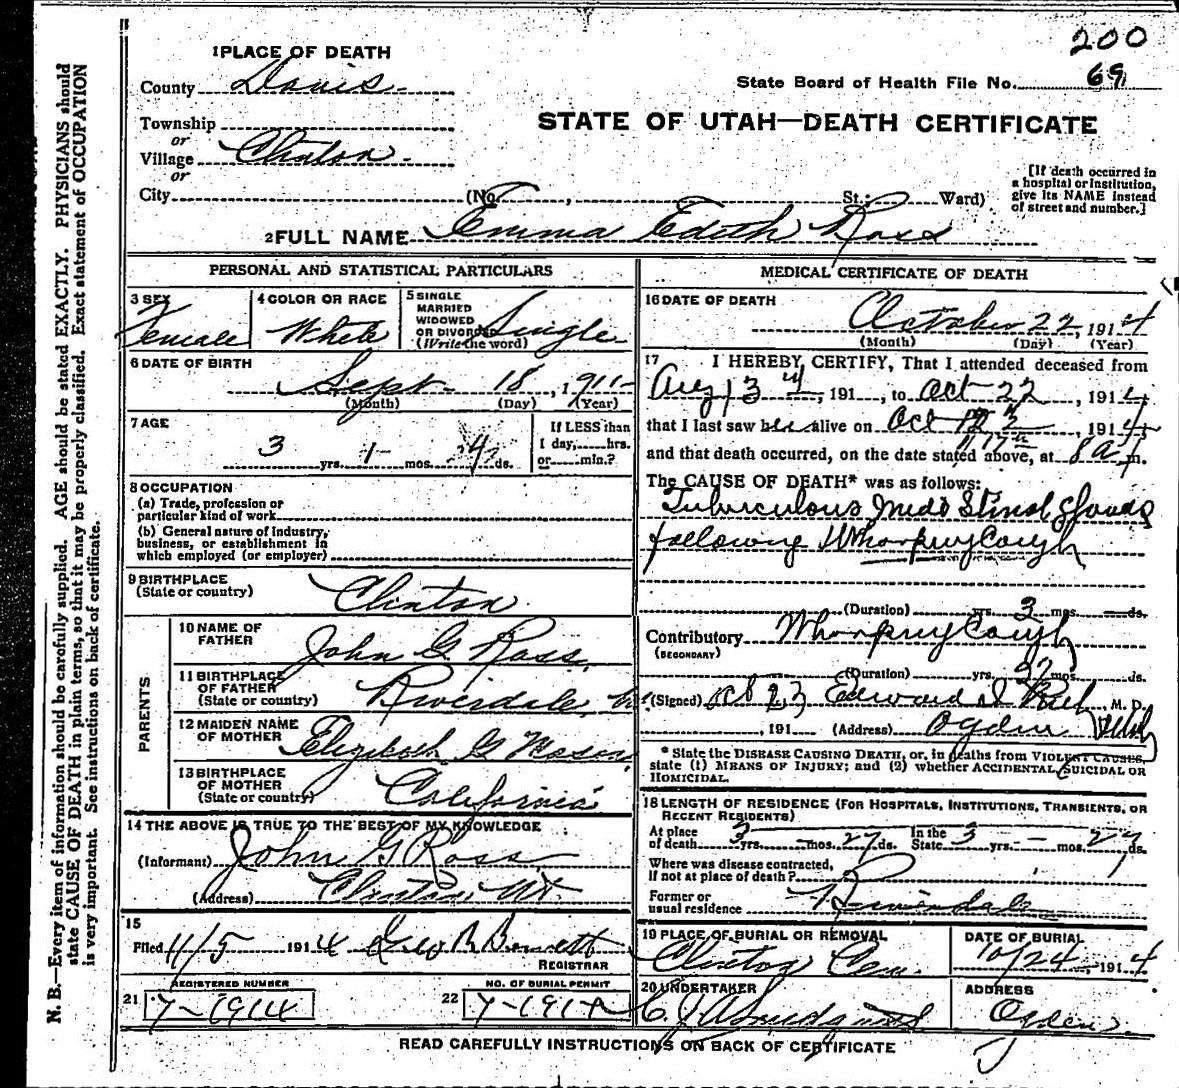 200
1 PLACE OF DEATH
County Davis
State Board of Health File No. 69
Township
or
Village Clinton
or
City (No. , St.; Ward)
STATE OF UTAH—DEATH CERTIFICATE
[If death occurred in
a hospital or institution,
give its NAME instead
of street and number.]
2 FULL NAME Emma Edith Ross
PERSONAL AND STATISTICAL PARTICULARS
3 SEX
Female
4 COLOR OR RACE
White
5 SINGLE
MARRIED
WIDOWED
OR DIVORCED
(Write the word)
Single
6 DATE OF BIRTH
Sept 18, 1911
(Month) (Day) (Year)
7 AGE
3 yrs. 1 mos. 4 ds.
If LESS than
1 day, hrs.
or min.?
8 OCCUPATION
(a) Trade, profession or
particular kind of work
(b) General nature of industry,
business, or establishment in
which employed (or employer)
9 BIRTHPLACE
(State or country)
Clinton
PARENTS
10 NAME OF
FATHER
John G. Ross
11 BIRTHPLACE
OF FATHER
(State or country)
Riverdale
12 MAIDEN NAME
OF MOTHER
Elizabeth G
13 BIRTHPLACE
OF MOTHER
(State or country)
California
14 THE ABOVE IS TRUE TO THE BEST OF MY KNOWLEDGE
(Informant) John G Ross
(Address) Clinton, Ut.
15
Filed 11/5 1914 Bennett
REGISTRAR
REGISTERED NUMBER
21 7-1914
NO. OF BURIAL PERMIT
22 7-191
MEDICAL CERTIFICATE OF DEATH
16 DATE OF DEATH
October 22, 1914
(Month) (Day) (Year)
17 I HEREBY CERTIFY, That I attended deceased from
Aug 13 , 191 , to Oct 22 , 1914
that I last saw her alive on Oct , 1914
and that death occurred, on the date stated above, at 8 a m.
The CAUSE OF DEATH* was as follows:
Tuberculous
following Whooping Cough
(Duration) yrs. 3 mos. ds.
Contributory Whooping Cough
(SECONDARY)
(Duration) yrs. mos. ds.
(Signed) Oct 23 Edward I , M. D.
, 191 (Address) Ogden Utah
* State the DISEASE CAUSING DEATH, or, in deaths from VIOLENT CAUSES,
state (1) MEANS OF INJURY; and (2) whether ACCIDENTAL, SUICIDAL OR
HOMICIDAL.
18 LENGTH OF RESIDENCE (FOR HOSPITALS, INSTITUTIONS, TRANSIENTS, OR
RECENT RESIDENTS)
At place
of death 3 yrs. mos. 27 ds.
In the
State 3 yrs. mos. 27 ds.
Where was disease contracted,
If not at place of death?
Former or
usual residence
19 PLACE OF BURIAL OR REMOVAL
Clinton Cem.
DATE OF BURIAL
10/24, 1914
20 UNDERTAKER
ADDRESS
Ogden
READ CAREFULLY INSTRUCTIONS ON BACK OF CERTIFICATE
N. B.—Every item of information should be carefully supplied. AGE should be stated EXACTLY. PHYSICIANS should
state CAUSE OF DEATH in plain terms, so that it may be properly classified. Exact statement of OCCUPATION
is very important. See instructions on back of certificate.